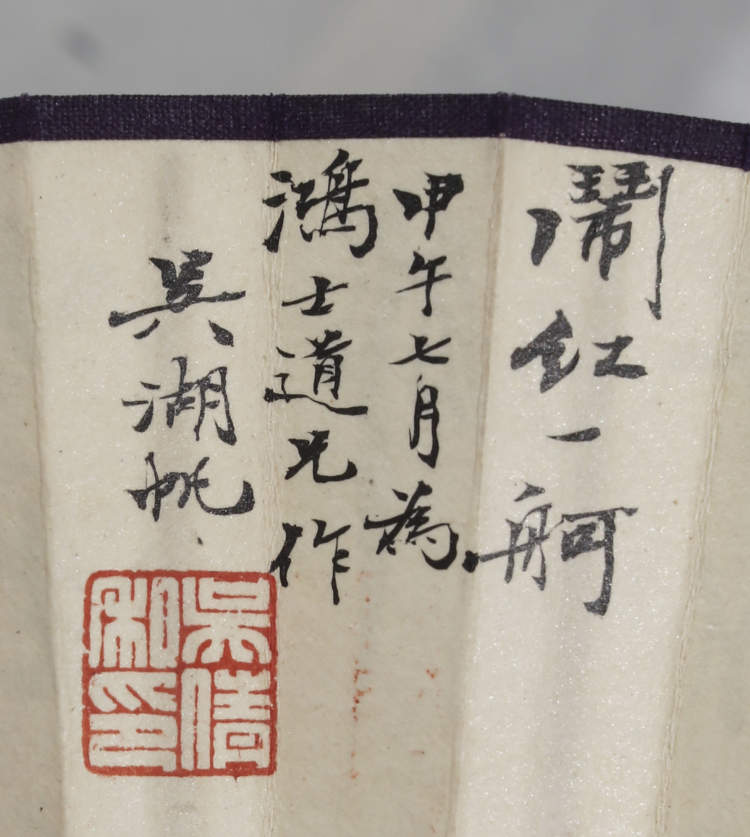 鬧紅一舸
甲午七月為
鴻士道兄作
吳湖帆
吳倩私印